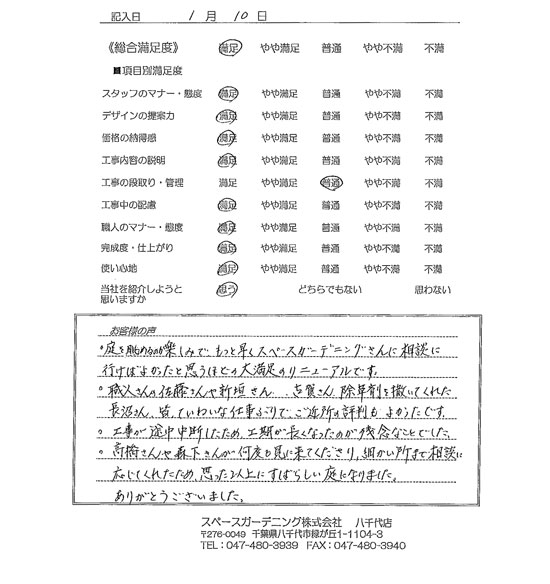 記入日 1月 10日
《総合満足度》 満足 やや満足 普通 やや不満 不満
■項目別満足度
スタッフのマナー・態度 満足 やや満足 普通 やや不満 不満
デザインの提案力 満足 やや満足 普通 やや不満 不満
価格の納得感 満足 やや満足 普通 やや不満 不満
工事内容の説明 満足 やや満足 普通 やや不満 不満
工事の段取り・管理 満足 やや満足 普通 やや不満 不満
工事中の配慮 満足 やや満足 普通 やや不満 不満
職人のマナー・態度 満足 やや満足 普通 やや不満 不満
完成度・仕上がり 満足 やや満足 普通 やや不満 不満
使い心地 満足 やや満足 普通 やや不満 不満
当社を紹介しようと 思う どちらでもない 思わない
思いますか
お客様の声
・庭を眺めるのが楽しみで、もっと早くスペースガーデニングさんに相談に
行けばよかったと思うほどの大満足のリニューアルです。
・職人さんの佐藤さんや新垣さん、古賀さん、除草剤を撒いてくれた
長沼さん、皆、ていねいな仕事ぶりで、ご近所の評判もよかったです。
・工事が途中中断したため、工期が長くなったのが残念なことでした。
・高橋さんや森下さんが何度も見に来てくださり、細かい所まで相談に
応じてくれたため、思った以上にすばらしい庭になりました。
ありがとうございました。
スペースガーデニング株式会社 八千代店
〒276-0049 千葉県八千代市緑が丘1-1104-3
TEL：047-480-3939 FAX：047-480-3940